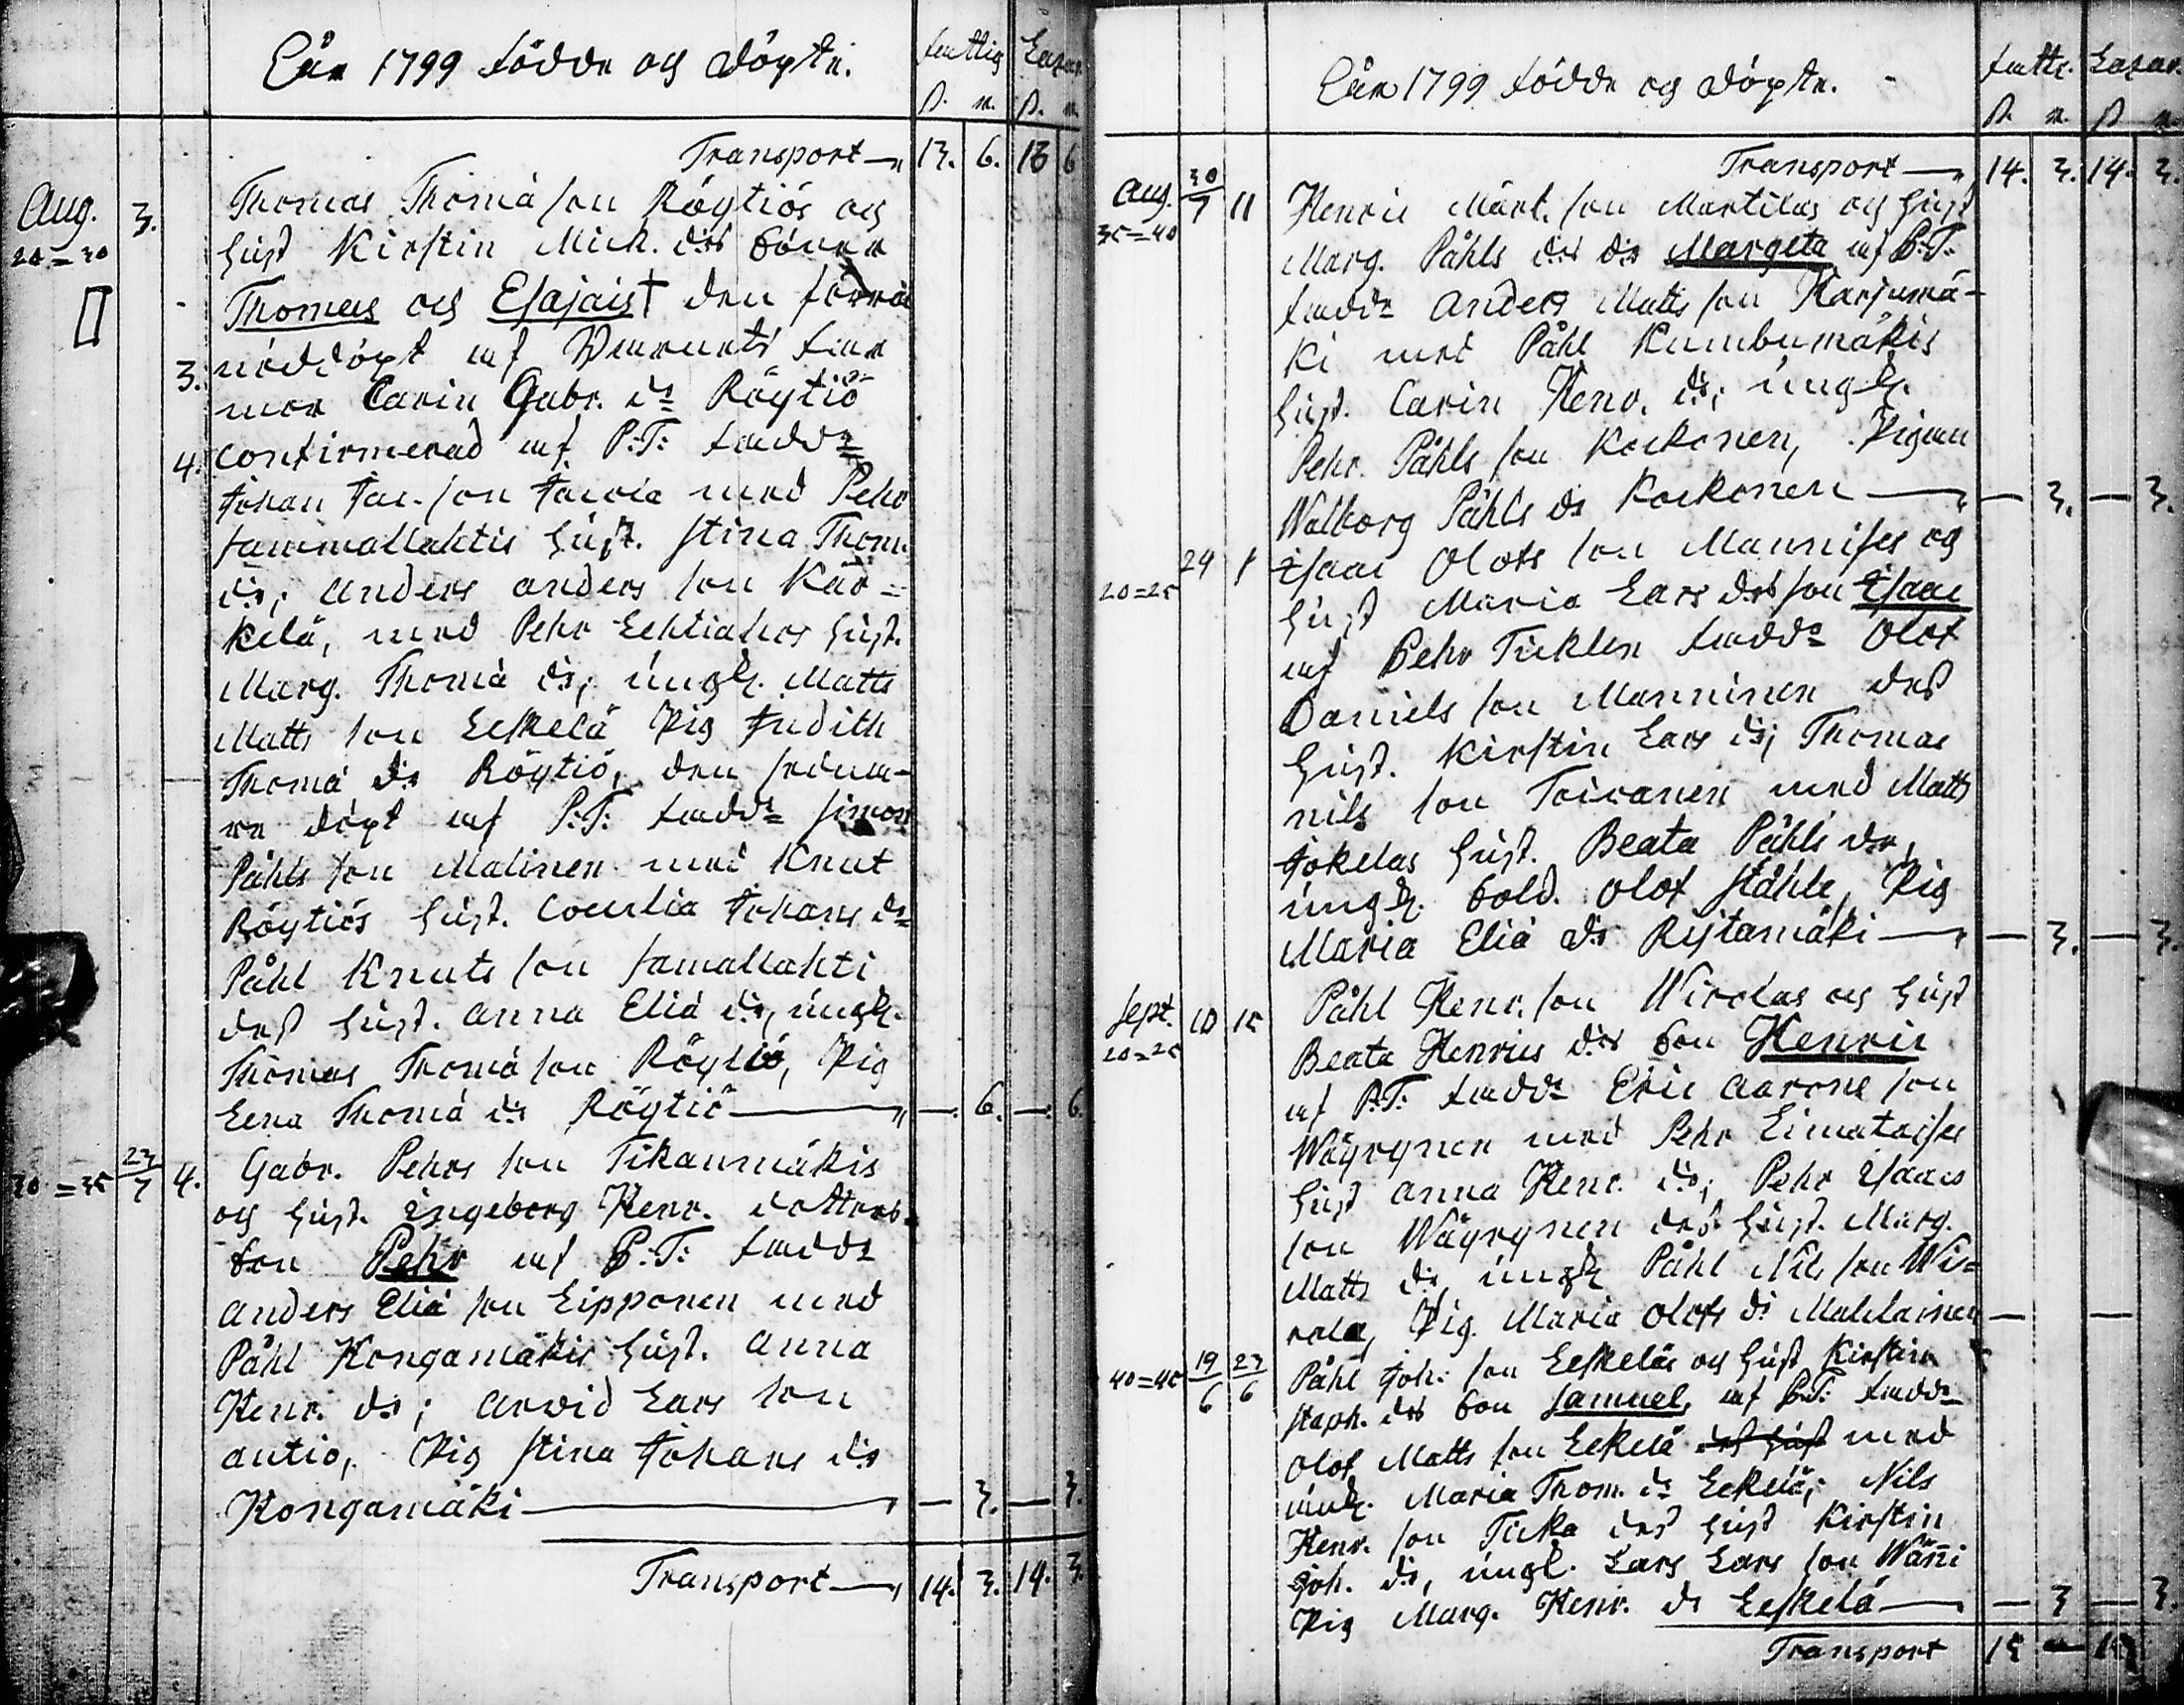 Åår 1799 födde och döpte.
fattig Lazar.
ß. r. ß. r.
Transport 13. 6. 13 6
Aug. 3. Thomas Thomæ son Röytiös och
20=30 hust Kirstin Mich. drs söner
Thomas och Esajas † den förra
nöddöpt af
3. mor Carin Gabr. dr Röytiö
4. confirmerad af P:T: fadd:
Johan Jac. son med Pehr
Sammallahtis hust. Stina Thom.
dr; Anders Anders son Kär=
kelä, med Pehr hust.
Marg. Thomæ dr; ungk. Matts
Matts son Leskelä Pig Judith
Thomæ dr Röytiö, den sedna-
re döpt af P:T: fadd: Simon
Påhls son Malinen med Knut
Röytiös hust. Johans dr
Påhl Knuts son Samallahti
deß hust. Anna Eliæ dr, ungk.
Thomas Thomæ son Röytiö, Pig
Lena Thomæ dr Röytiö — 6. — 6.
30=35 23/7 4. Gabr. Pehrs son Tikanmäkis
och hust. Ingeborg Henr. dotters
son Pehr af P:T: fadd:
Anders Eliæ son Lipponen med
Påhl Kongamäkis hust. Anna
Henr. dr; Arvid Lars son
Antio, Pig Stina Johans dr
Kongamäki — 3. — 3.
Transport 14. 3. 14. 3.
Åår 1799 födde och döpte.
fattig. Lazar.
ß. r. ß r.
Transport 14. 3. 14. 3.
Aug. 30/7 11 Henric Mårt. son Martikas och hust
35=40 Marg. Påhls drs dr Margeta af P:T:
fadd: Anders Matts son Harjumä-
ki med Påhl Kumbumäkis
hust. Carin Henr. dr; ungk.
Pehr Påhls son Kockonen, Pigan
Walborg Påhls dr Kockonen — 3. — 3.
29 1 Isaac Olofs son Mannises och
20=25 hust Maria Lars drs son Isaac
af Pehr Ticklen fadd: Olof
Daniels son Manninen deß
hust. Kirstin Lars dr; Thomas
Nils son Toivanen med Matts
Jokelas hust. Beata Påhls dr,
ungk. Sold. Olof Ståhle, Pig
Maria Eliæ dr Ristamäki — 3. — 3.
Sept. 10 15 Påhl Henr. son Wirolas och hust
20=25 Beata Henrics drs son Henric
af P:T: fadd: Eric Aarons son
Wäyrynen med Pehr Limataises
hust Anna Henr. dr; Pehr Isaacs
son Wäyrynen deß hust. Marg.
Matts dr, ungk Påhl Nils son Wi=
rola, Pig. Maria Olofs dr Mahlainen — —
40=45 19/6 23/6 Påhl Joh. son Leskeläs och hust Kirstin
Staph. drs son Samuel, af P:T: fadd:
Olof Matts son Leskelä deß hust med
Maria Thom. dr Leskelä; Nils
Henr. son Ticka deß hust Kirstin
Joh. dr, ungk. Lars Lars son Wänni
Pig Marg. Henr. dr Leskelä — 3 — 3.
Transport 15 — 15